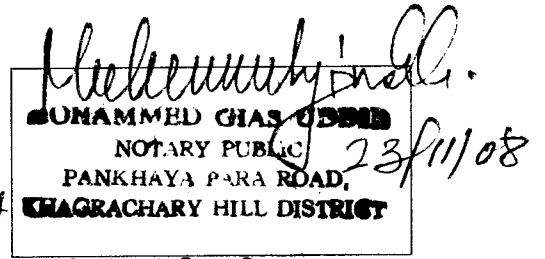 MOHAMMED GIAS UDDIN
NOTARY PUBLIC
PANKHAYA PARA ROAD,
KHAGRACHARY HILL DISTRICT
23/11/08